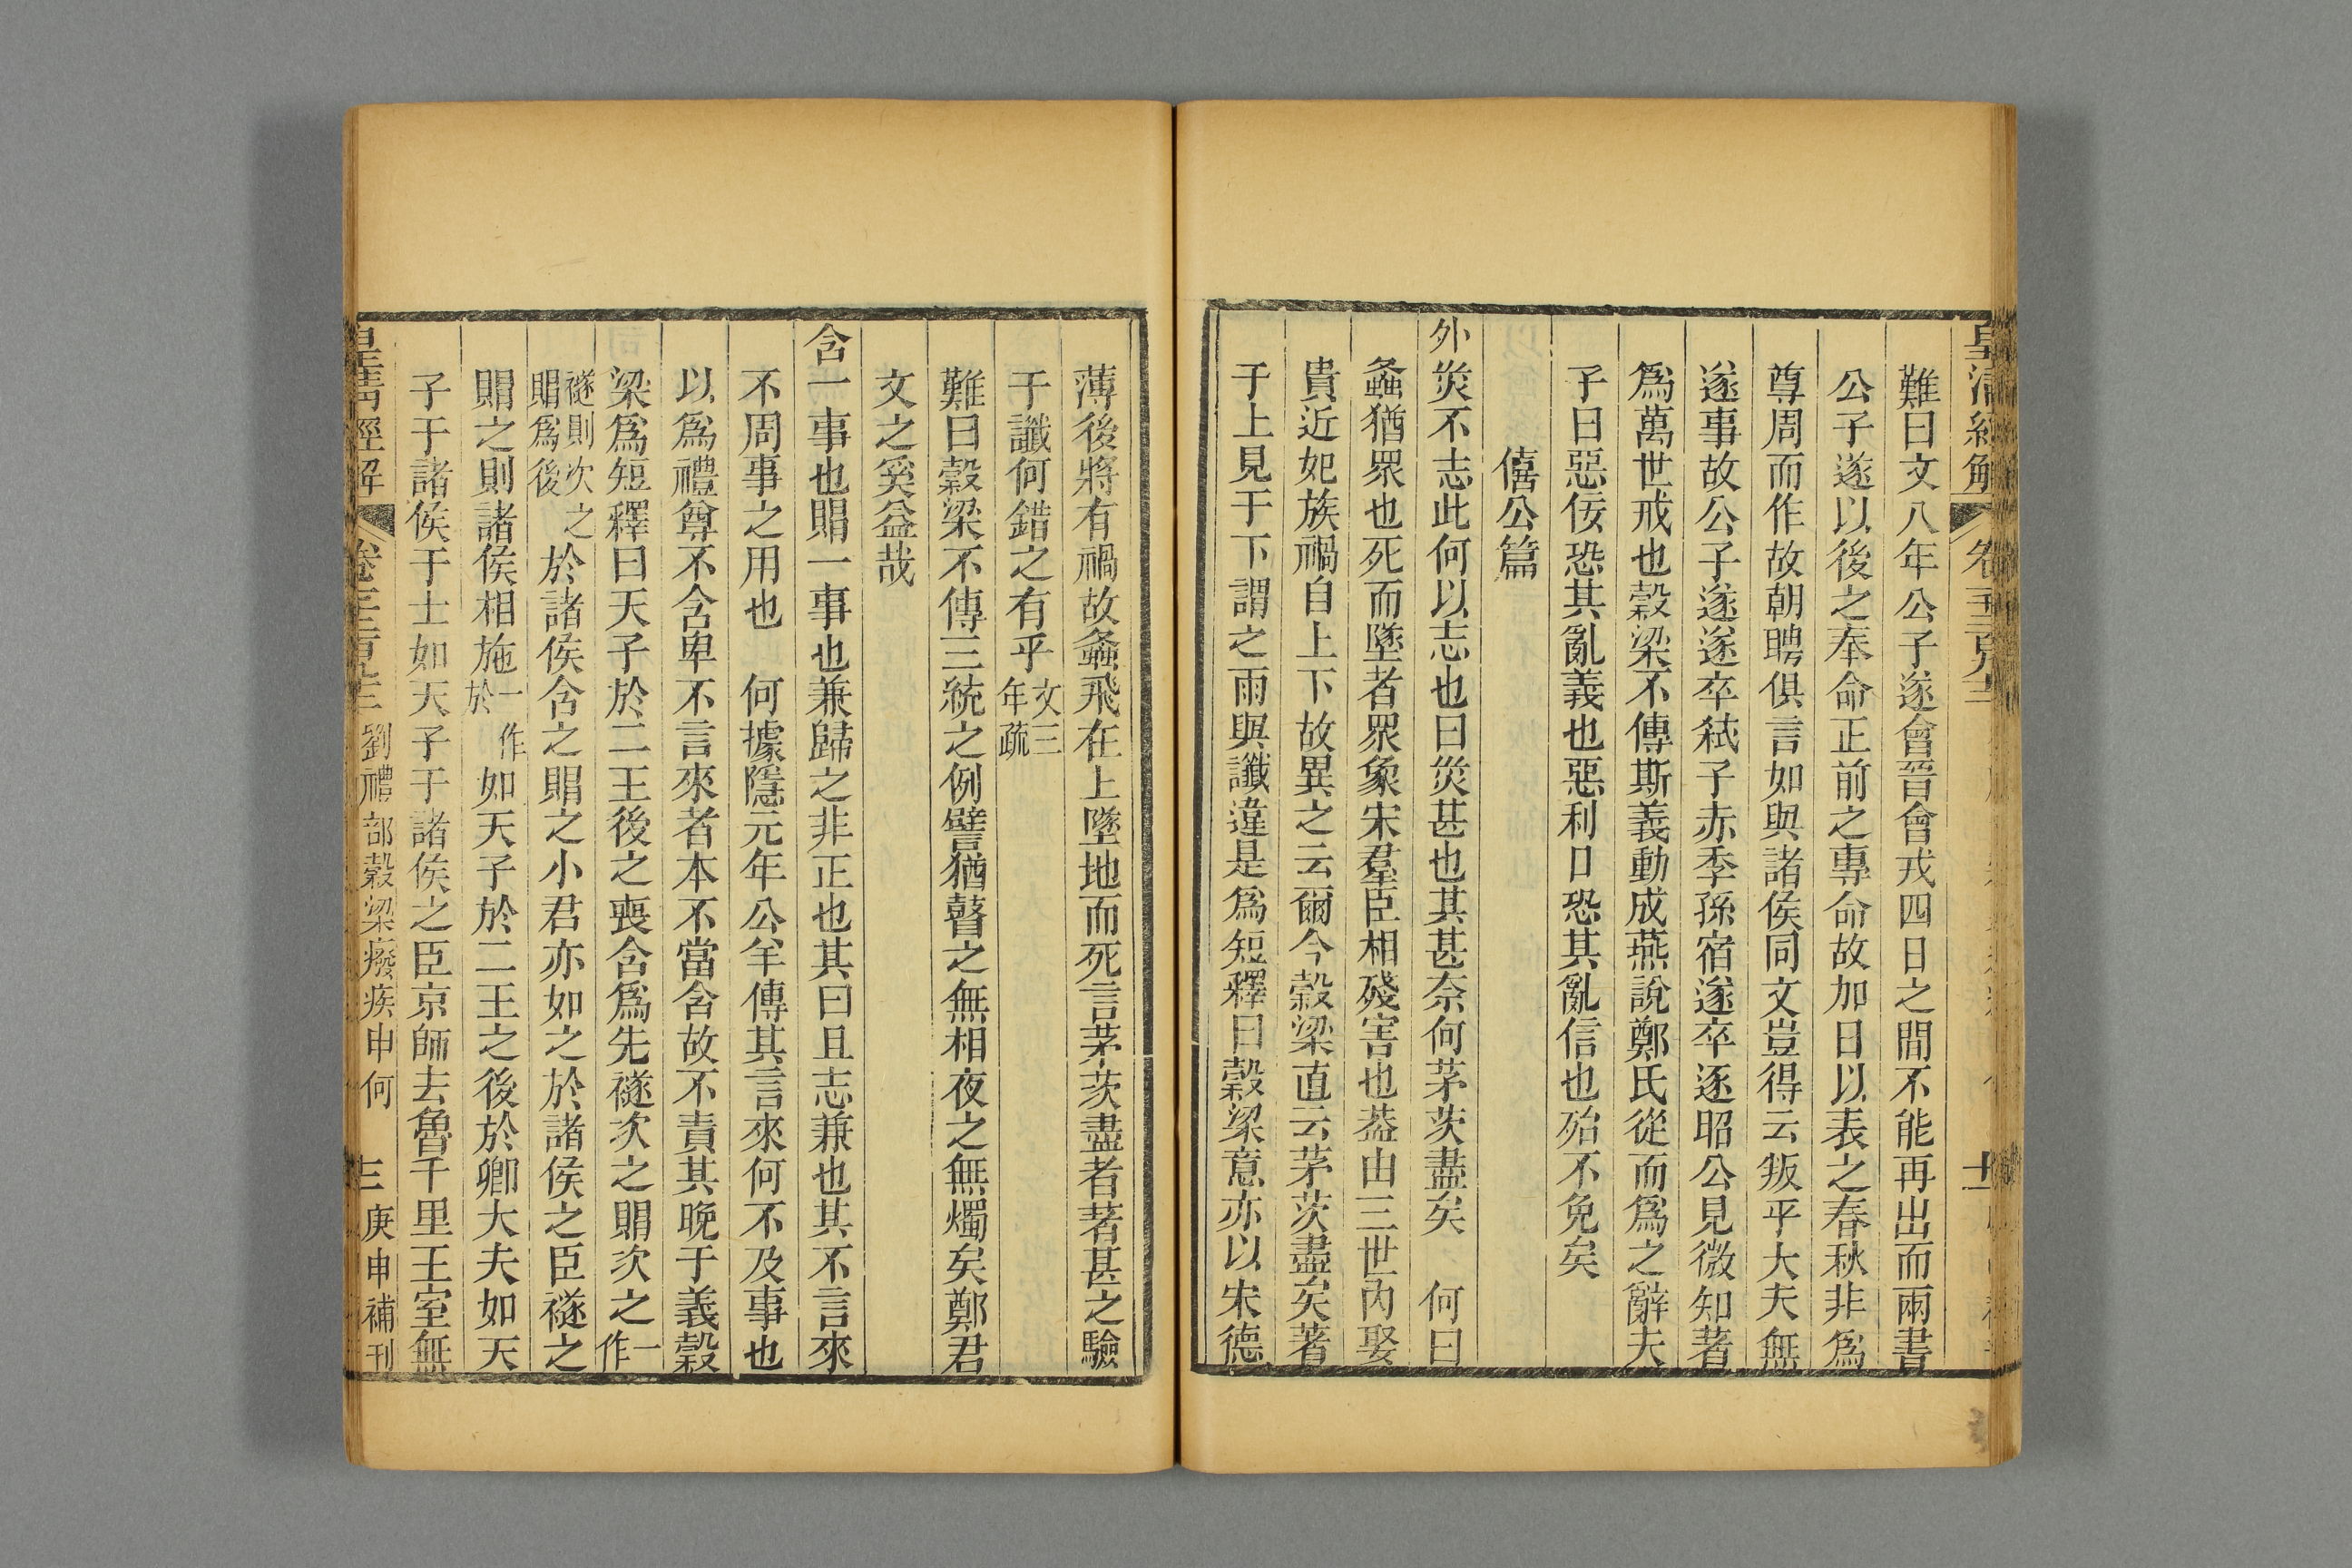 難曰文八年公子遂會晉會戎四日之間不能再出而兩書
公子遂以後之奉命正前之專命故加日以表之春秋非爲
尊周而作故朝聘俱言如與諸侯同文豈得云叛乎大夫無
遂事故公子遂遂卒弒子赤季孫宿遂卒逐昭公見微知著
爲萬世戒也穀梁不傳斯義動成燕說鄭氏從而爲之辭夫
子曰惡佞恐其亂義也惡利口恐其亂信也殆不免矣
僖公篇
外災不志此何以志也曰災甚也其甚奈何茅茨盡矣　何曰
螽猶眾也死而墜者眾象宋羣臣相殘害也葢由三世內娶
貴近妃族禍自上下故異之云爾今穀梁直云茅茨盡矣著
于上見于下謂之雨與讖違是爲短釋曰穀梁意亦以宋德
薄後將有禍故螽飛在上墜地而死言茅茨盡者著甚之驗
于讖何錯之有乎文三年疏
難曰穀梁不傳三統之例譬猶瞽之無相夜之無燭矣鄭君
文之奚益哉
含一事也賵一事也兼歸之非正也其曰且志兼也其不言來
不周事之用也　何據隱元年公羊傳其言來何不及事也
以爲禮尊不含卑不言來者本不當含故不責其晚于義穀
梁爲短釋曰天子於二王後之喪含爲先襚次之賵次之一作
襚則次之賵爲後於諸侯含之賵之小君亦如之於諸侯之臣襚之
賵之則諸侯相施一作於如天子於二王之後於卿大夫如天
子于諸侯于士如天子于諸侯之臣京師去魯千里王室無
皇清經解　劉禮部穀梁癈疾申何　庚申補刊